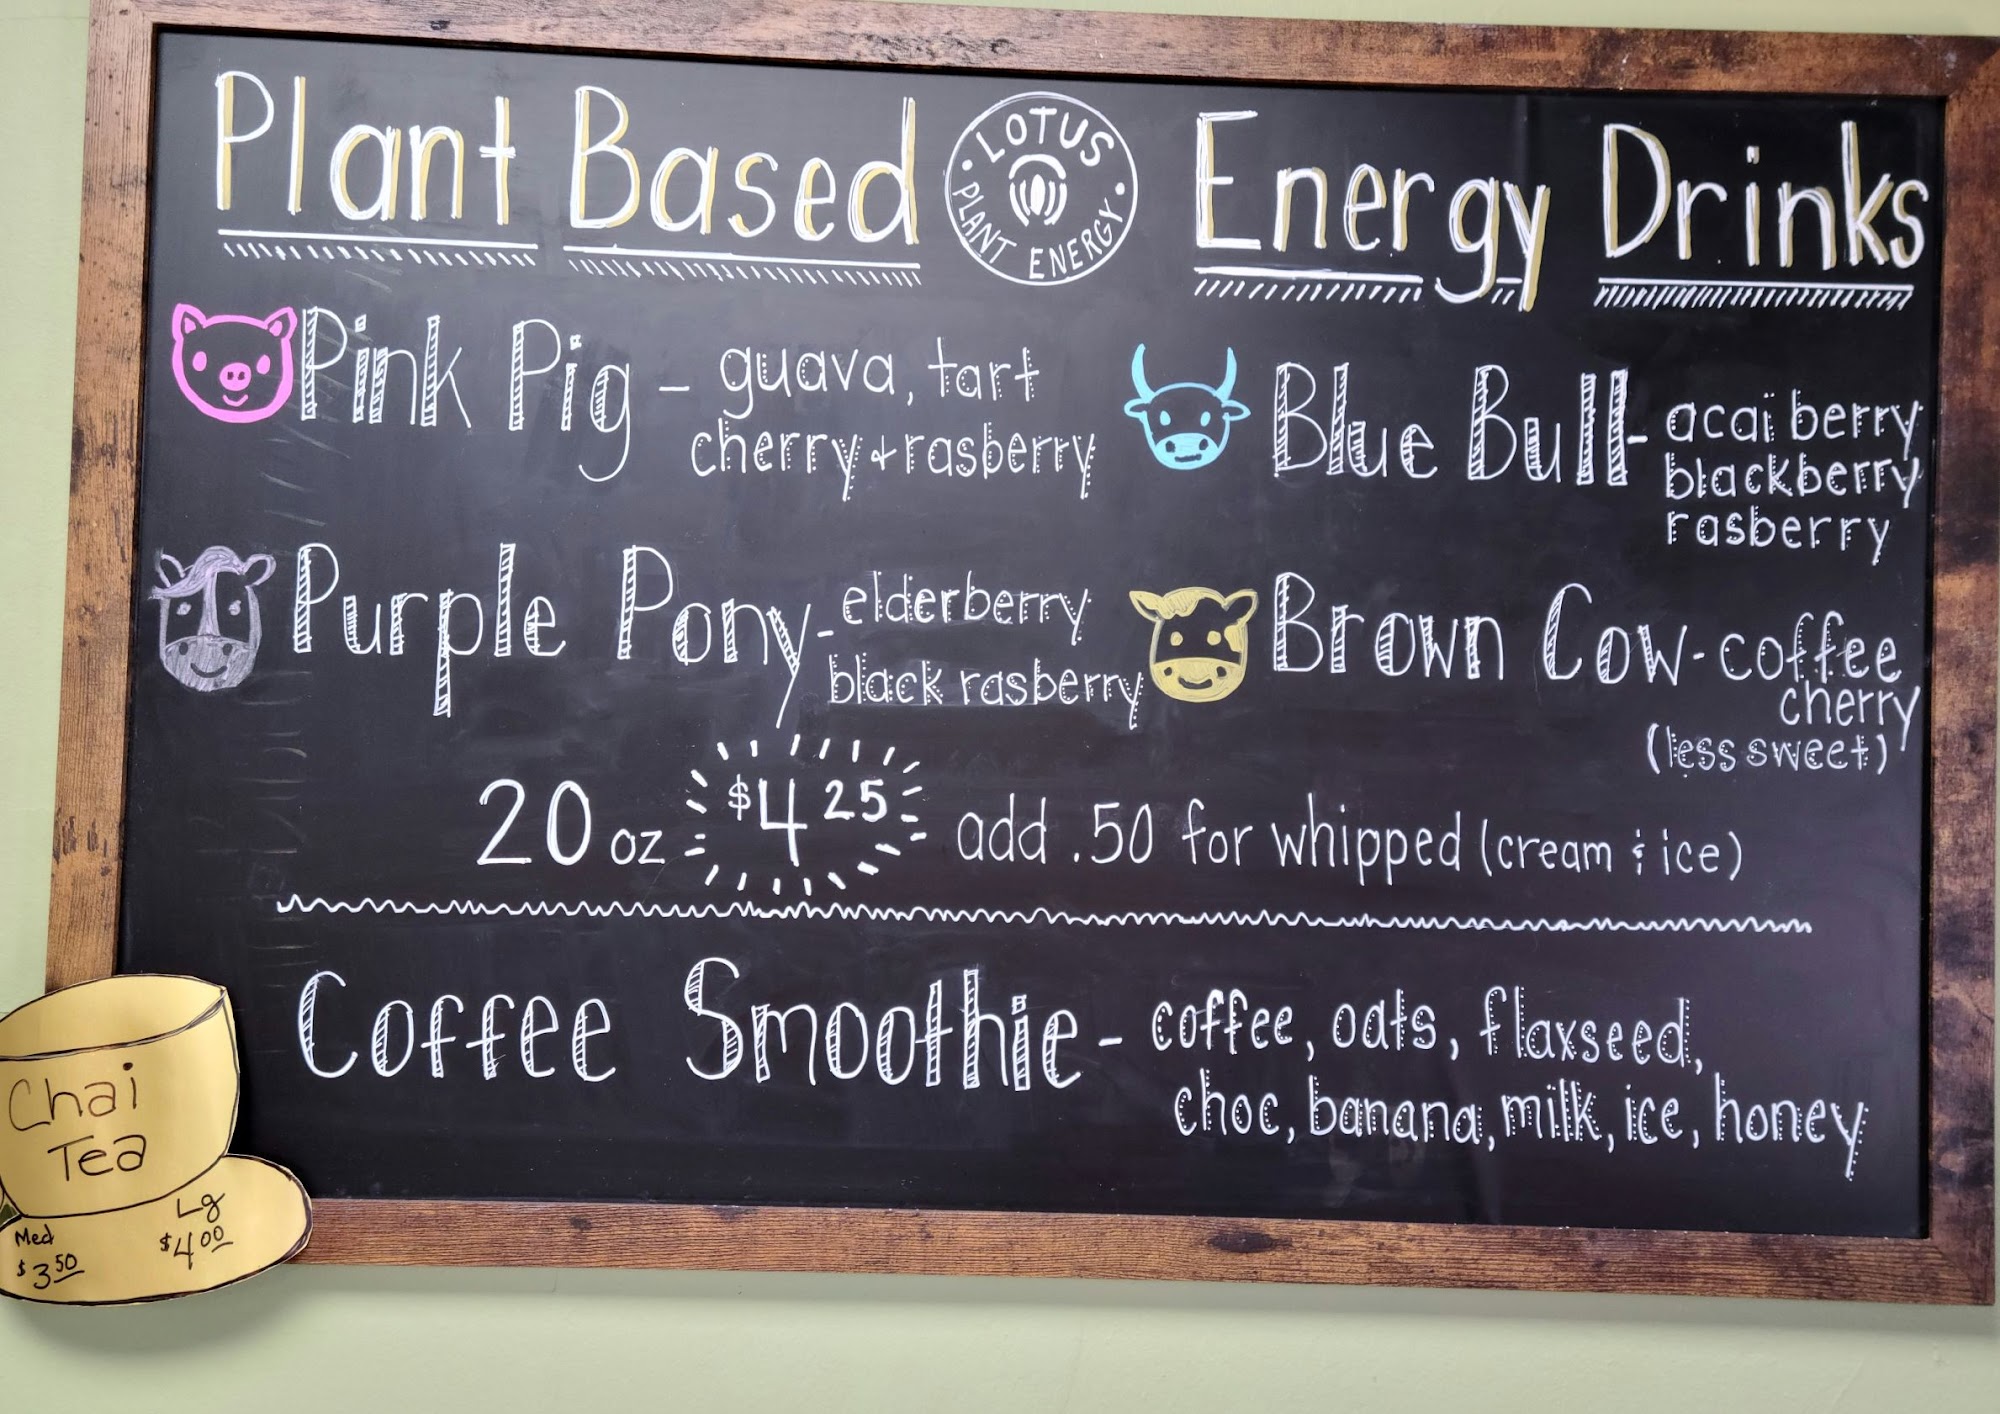 Plant Based LOTUS PLANT ENERGY Energy Drinks
Pink Pig - guava, tart
cherry + rasberry
Blue Bull - acai berry
blackberry
rasberry
Purple Pony - elderberry
black rasberry
Brown Cow - coffee
cherry
(less sweet)
20 oz $4 25 add .50 for whipped (cream & ice)
Coffee Smoothie - coffee, oats, flaxseed,
choc, banana, milk, ice, honey
Chai
Tea
Med
$3 50
Lg
$4 00